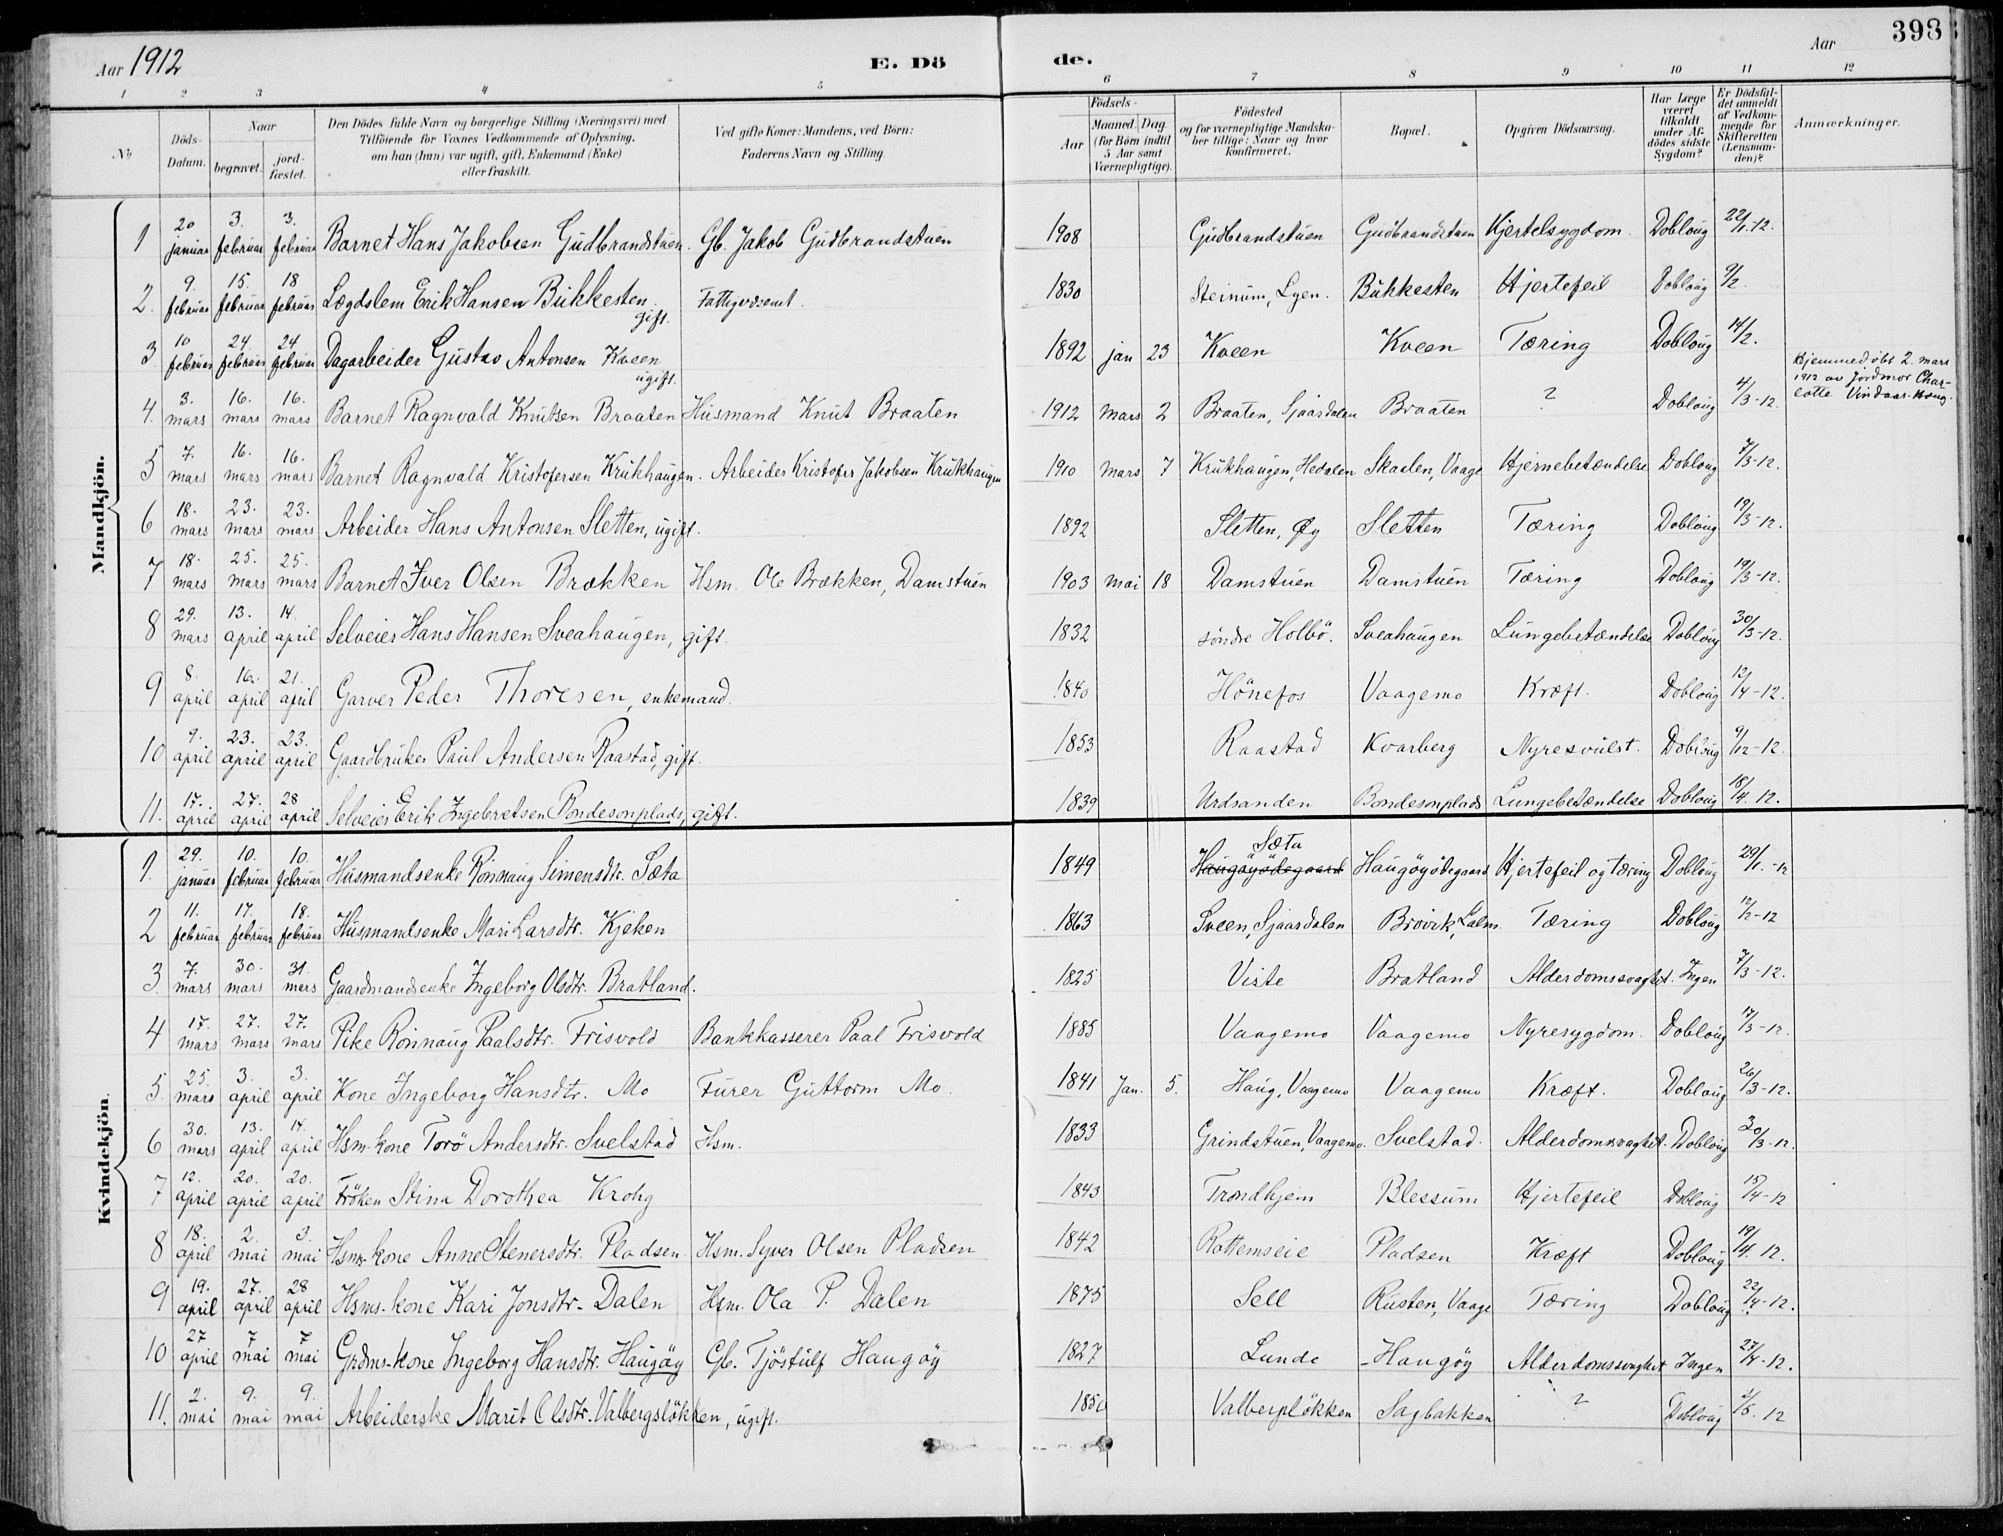 Aar 1912
E. Dö
de.
Aar
398
1 2 3 4 5 6 7 8 9 10 11 12
No
Döds-Datum.
Naar
begravet.
jord-fæstet.
Den Dödes fulde Navn og borgerlige Stilling (Næringsvei) med
Tilföiende for Voxnes Vedkommende af Oplysning,
om han (hun) var ugift, gift, Enkemand (Enke)
eller fraskilt.
Ved gifte Koner: Mandens, ved Börn:
Faderens Navn og Stilling.
Födsels-
Aar
Maaned. Dag.
(for Börn indtil
5 Aar samt
Værnepligtige).
Födested
og for værnepligtige Mandska-
ber tillige: Naar og hvor
konfirmeret.
Bopæl.
Opgiven Dödsaarsag.
Har Læge
været
tilkaldt
under Af-
dödes sidste
Sygdom?
Er Dödsfal-
det anmeldt
af Vedkom-
mende for
Skifteretten
(Lensman-
den)?
Anmærkninger.
Mandkjön.
1 20 januar 3. februar 3. februar Barnet Hans Jakobsen Gudbrandstuen. Gb. Jakob Gudbrandstuen 1908 Gudbrandstuen Gudbrandstuen Kjertelsygdom. Dobloug 22/1-12.
2. 9. februar 15. februar 18 februar Lægdslem Erik Hansen Bukkesten. gift. Fattigvæsenet. 1830 Steinum, Lyen. Bukkesten Hjertefeil Dobloug 9/2.
3. 10 februar 24. februar 24 februar Dagarbeider Gustav Antonsen Kveen ugift. 1892 jan 23 Kveen Kveen Tæring Dobloug 14/2.
4. 3. mars 16. mars 16. mars Barnet Ragnvald Knutsen Braaten Husmand Knut Braaten 1912 Mars 2 Braaten, Sjaardalen Braaten ? Dobloug 4/3-12. Hjemmedöbt 2. mars
1912 av Jordmor Char-
lotte Vindaar-Haug.
5 7. mars 16. mars 16. mars Barnet Ragnvald Kristofersen Krukhaugen. Arbeider Kristofer Jakobsen Krukhaugen 1910 Mars 7 Krukhaugen, Hedalen Skaalen, Vaage Hjernebetændelse Dobloug 7/3-12.
6 18. mars 23. mars 23. mars Arbeider Hans Antonsen Sletten, ugift. 1892 Sletten, Øy Sletten Tæring Dobloug 19/3-12.
7 18. mars 25. mars 25. mars Barnet Iver Olsen Brækken Hsm. Ole Brækken, Damstuen 1903 Mai 18 Damstuen Damstuen Tæring Dobloug 19/3-12.
8 29. mars 13. april 14. april Selveier Hans Hansen Sveahaugen, gift. 1832 söndre Holbö. Sveahaugen Lungebetændelse Dobloug 30/3-12.
9 8. april 16. april 21. april Garver Peder Thoresen, enkemand. 1840 Hönefos Vaagemo Kræft. Dobloug 12/4-12.
10 9. april 23. april 23. april Gaardbruker Paul Andersen Raastad, gift. 1853 Raastad Kvarberg Nyresvulst. Dobloug 9/12-12.
11. 17. april 27. april 28 april Selveier Erik Ingebretsen Bondesonplads, gift. 1839 Urdsanden Bondesonplads Lungebetændelse Dobloug 18/4.12.
Kvindekjön.
1. 29. januar 10. februar 10. februar Husmandsenke Rönnaug Simensdtr. Sæta 1849 Haugöyödegaard Sæta Haugöyödegaard Hjertefeil og tæring Dobloug 29/1.-12
2 11. februar 17. februar 18. februar Husmandsenke Mari Larsdtr. Kjeken 1863 Sveen, Sjaardalen Brövik, Lalm. Tæring Dobloug 12/2-12
3. 7. mars 30. mars 31. mars Gaardmandsenke Ingeborg Olsdtr. Bratland. 1825 Viste Bratland Alderdomssvaghet. Ingen 7/3-12.
4 17. mars 27. mars 27. mars Pike Rönnaug Paalsdtr. Frisvold Bankkasserer Paal Frisvold 1885 Vaagemo Vaagemo Nyresygdom. Dobloug 17/3-12.
5. 25. mars 3. april 3. april Kone Ingeborg Hansdtr. Mo Furer Guttorm Mo. 1841 Jan. 5. Haug, Vaagemo Vaagemo Kræft. Dobloug 26/3-12.
6 30. mars 13. april 14. april Hsm.-kone Torö Andersdtr. Svelstad Hsm. 1833 Grindstuen, Vaagemo. Svelstad. Alderdomsvaghet. Dobloug 30/3-12.
7 12. april 20. april 20. april Fröken Stina Dorothea Krohg 1843 Trondhjem Blessum Hjertefeil Dobloug 15/4-12
8 18. april 2. mai 3. mai Hsms-kone Anne Stenersdtr. Pladsen. Hsm. Syver Olsen Pladsen 1842 Rottemseie Pladsen Kræft Dobloug 19/4.12.
9 19. april 27. april 28 april Hsms.-kone Kari Jonsdtr. Dalen Hsm. Ola P. Dalen 1875 Sell Rusten, Vaage Tæring Dobloug 22/4-12.
10 27 april 7 mai 7 mai Grdms-kone Ingeborg Hansdtr. Haugöy Gb. Tjöstulf Haugöy 1827 Lunde Haugöy Alderdomssvaghet Ingen 27/4-12.
11. 2. mai 9. mai 9. mai Arbeiderske Marit Olsdtr. Valbergslökken, ugift. 1850 Valberglökken Sagbakken ? Dobloug 2/5.12